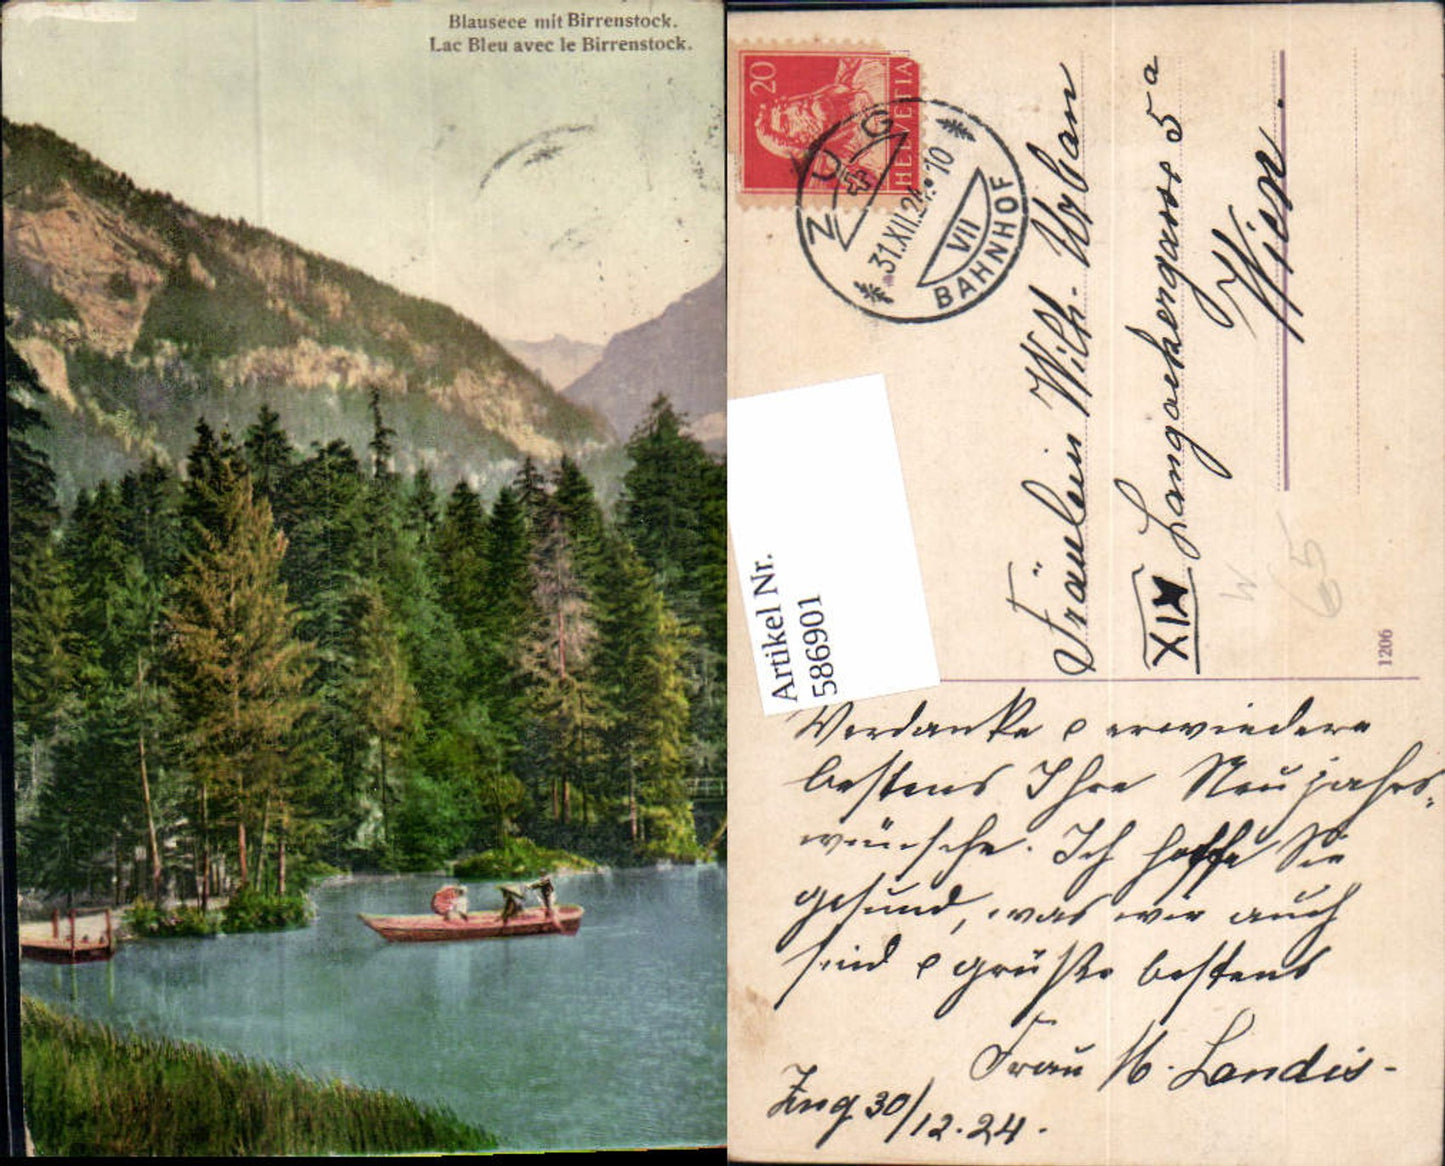 Blausee mit Birrenstock.
Lac Bleu avec le Birrenstock.
20
HELVETIA
ZUG
31.XII.24.10
VII
BAHNHOF
Fräulein Wilh. Urban
XIX Langackergasse 5a
Wien.
W
65
1206
Artikel Nr.
586901
Verdanke & erwiedere
bestens Ihre Neujahrs-
wünsche. Ich hoffe Sie
gesund, was wir auch
sind & grüße bestens
Frau M. Landis-
Zug 30/12.24.